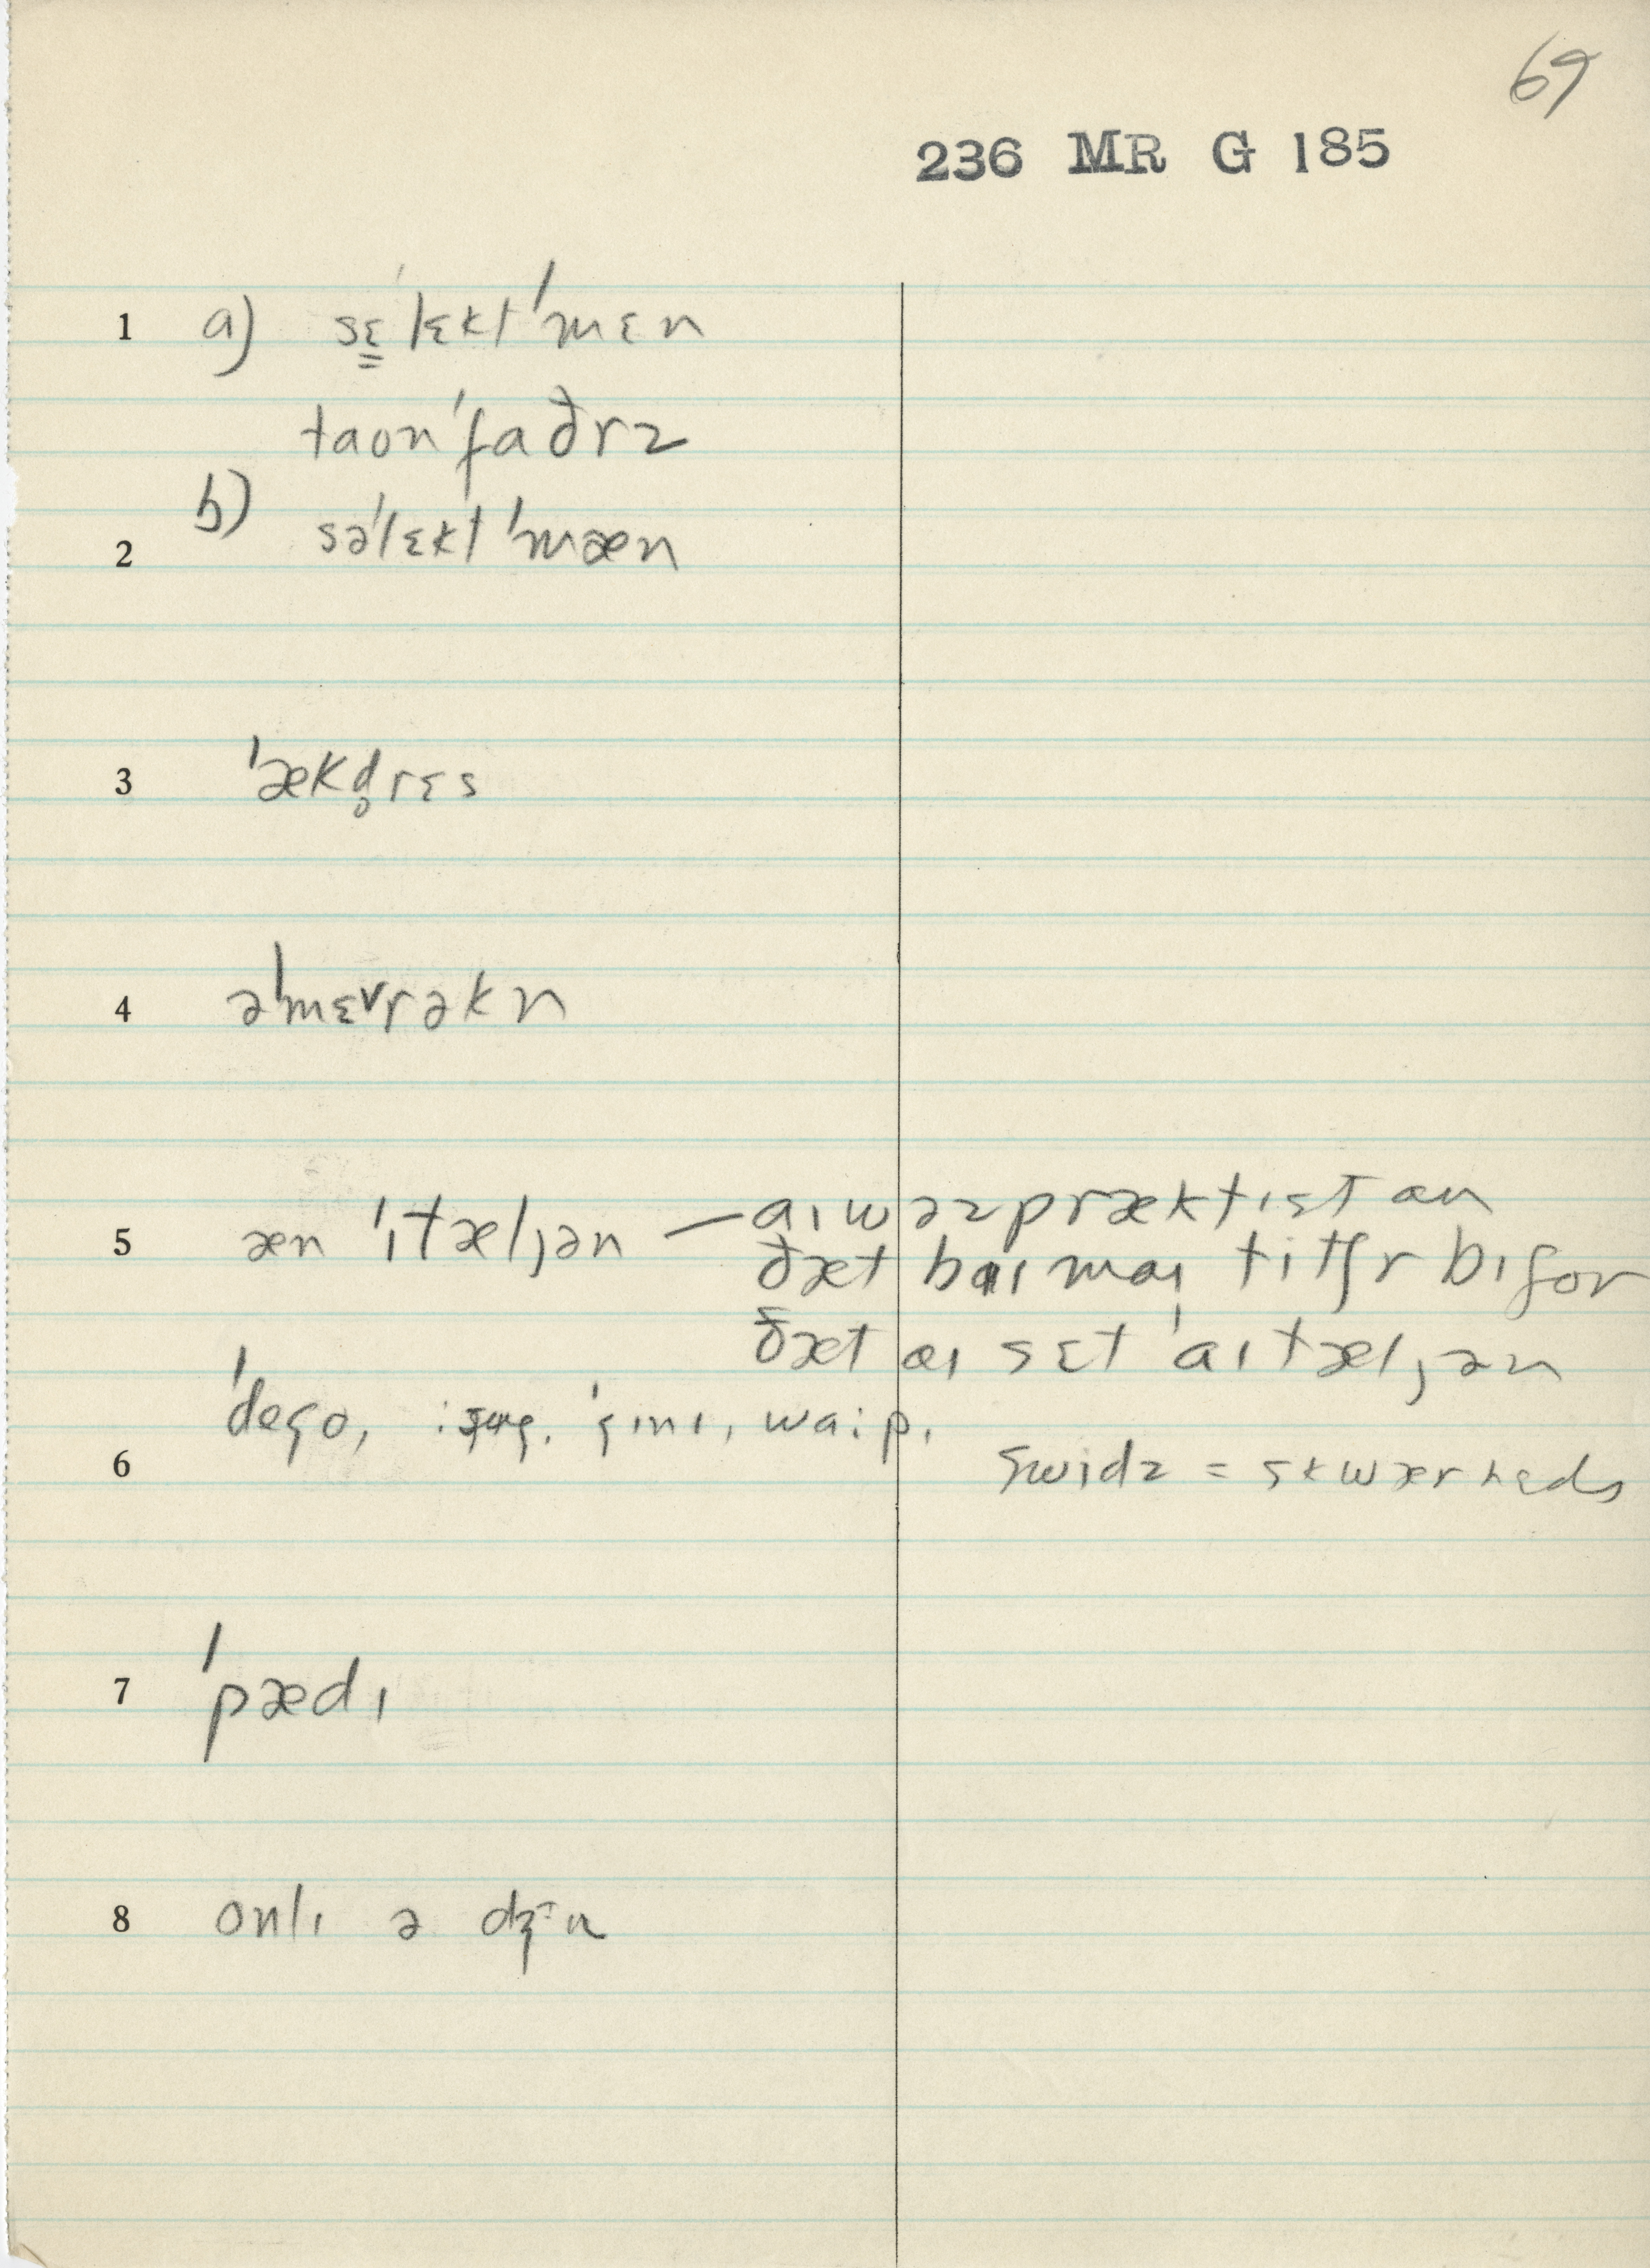 69
236 MR G 185
1 a) sɛ̳ˈlɛktˈmɛn
taonˈfaðrz
b)
2 səˈlɛktˈmæn
3 ˈækd̥rɛs
4 əˈmɛ˅rəkn
5 æn ˈɪtæljən — aɪ wəz præktɪst an
ðæt baɪ maɪ titʃr bɪfor
ðæt aɪ sɛt ˈaɪtæljən
ˈdego, ˈgɪnɪ, waːp.
6 swidz = skwærhɛds
7 ˈpædɪ
8 onlɪ ə